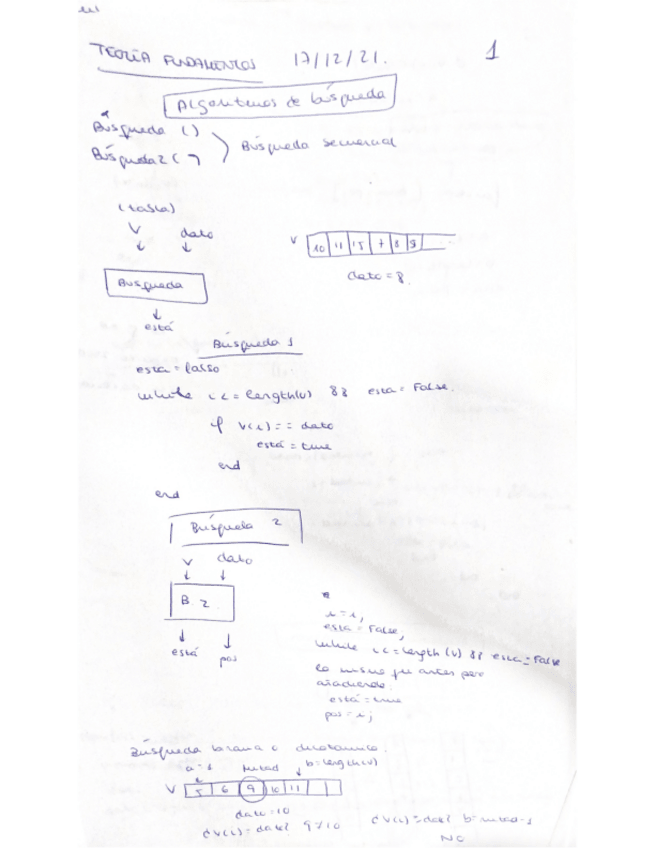 TEORÍA FUNDAMENTOS 17/12/21. 1
Algoritmos de búsqueda
Búsqueda ()
Búsqueda2 ()
Búsqueda secuencial
(tabla)
V dato
V 10 11 15 7 8 9
dato = 8
Búsqueda
está
Búsqueda 1
esta = falso
while i <= length(v) && esta = False.
if v(i) == dato
está = true
end
end
Búsqueda 2
V dato
B. 2
está pos
i = 1;
esta = False;
while i <= length(v) && esta = False
lo mismo que antes pero
añadiendo.
está = true
pos = i;
Búsqueda binaria o dicotómica.
a = 1 mitad b = length(v)
V 5 6 9 10 11
dato = 10
¿V(i) = dato? 9 ≠ 10 ¿V(i) = dato? b = mitad - 1
NO